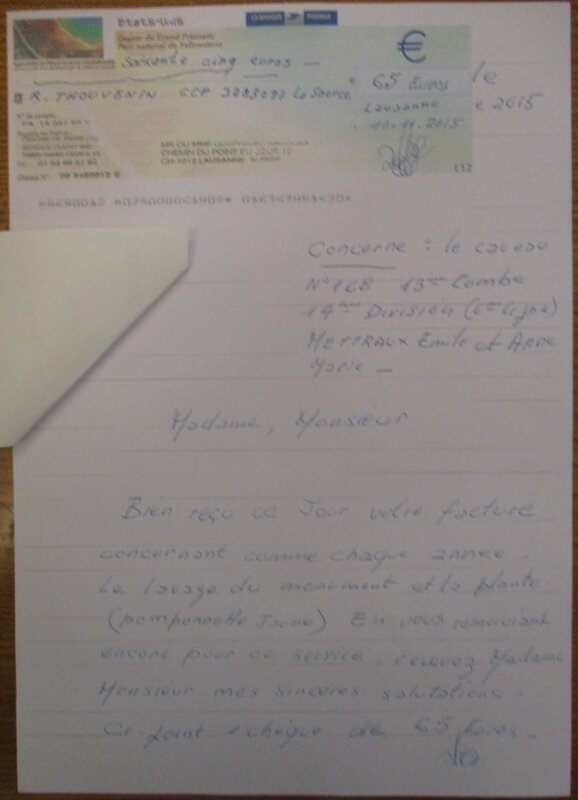 États-Unis
LA BANQUE POSTALE
Geyser du Grand Prismatic
Parc national de Yellowstone
Soixante cinq euros —
€
65 Euros
R. THOUVENIN CCP La Source
Lausanne
10.11.2015
CHEMIN DU POINT DU JOUR
CH-1018 LAUSANNE
le
2015
Concerne : le caveau
N° 168 13ème Combe
14ème Division (6ème ligne)
METTRAUX Emile et Anne
Marie —
Madame, Monsieur
Bien reçu ce Jour votre facture
concernant comme chaque année.
Le lavage du monument et la plante
(pomponnette Jaune) En vous remerciant
encore pour ce service, recevez Madame
Monsieur mes sincères salutations.
Ci-joint 1 chèque de 65 Euros.